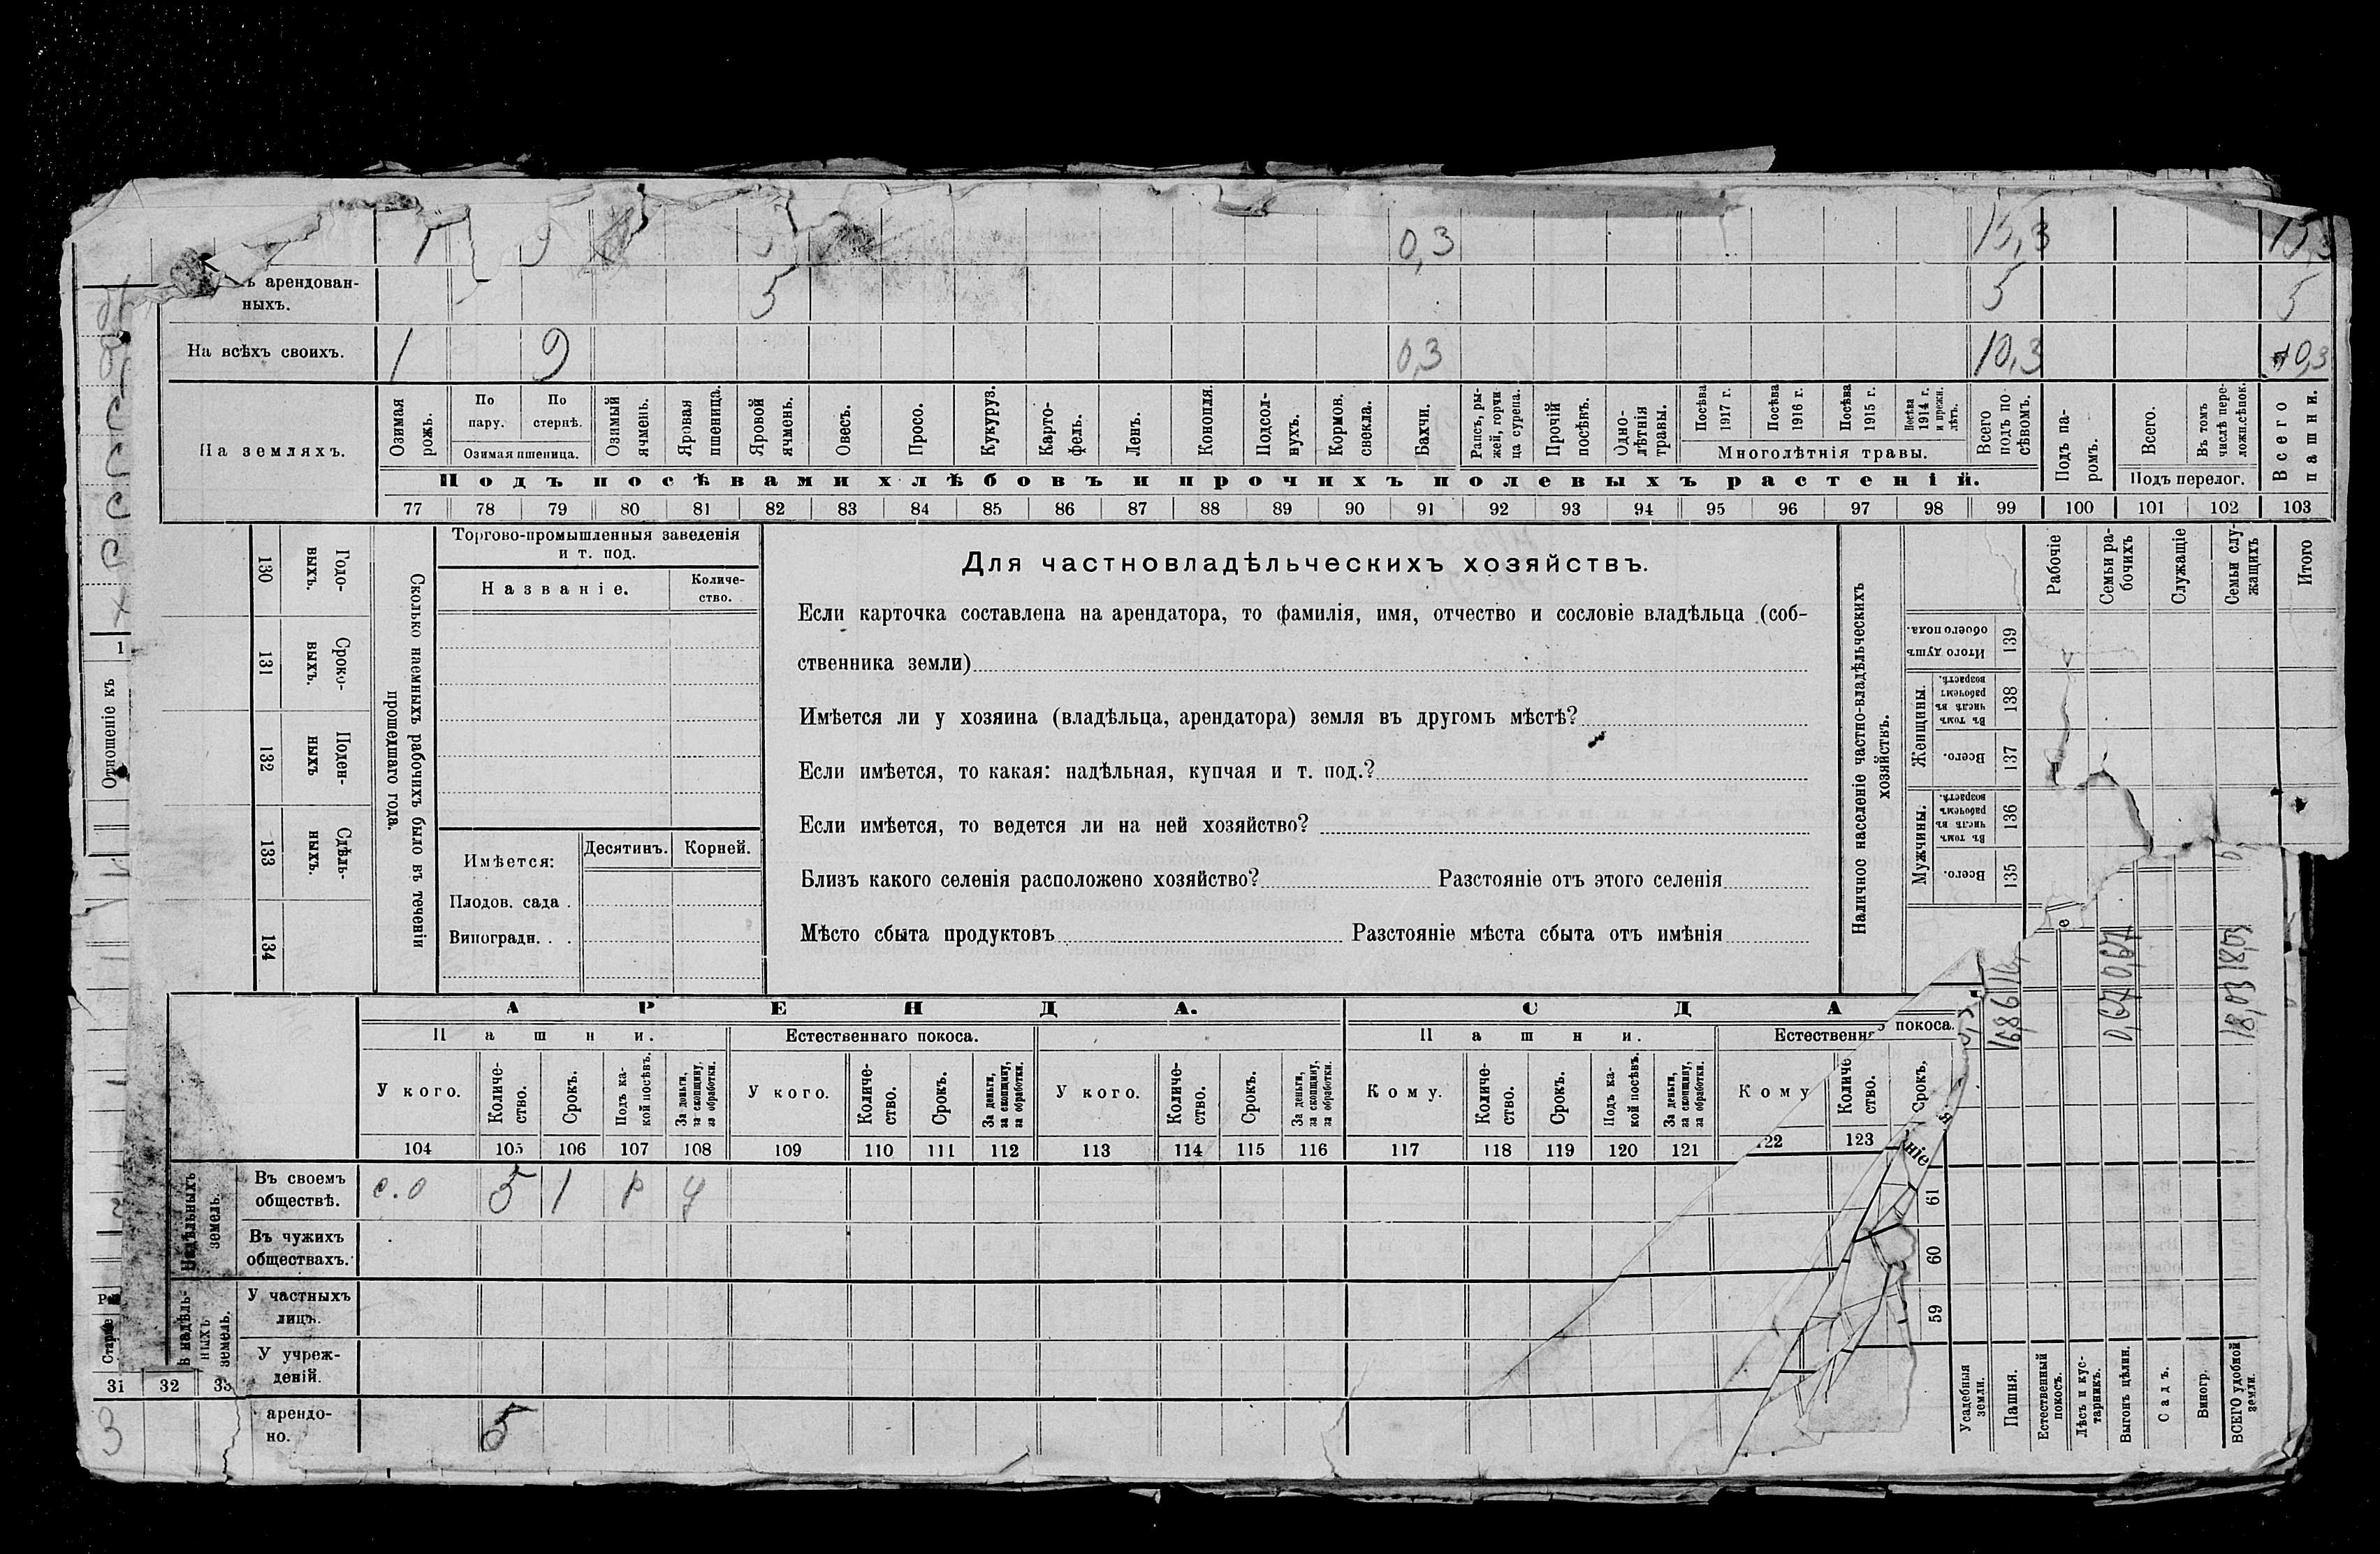 1 9 5 0,3 15,3 15,3
арендован-
ныхъ. 5 5 5
На всѣхъ своихъ. 1 9 0,3 10,3 10,3
На земляхъ.
Озимая рожь.
По пару.
По стернѣ.
Озимая пшеница.
Озимый ячмень.
Яровая пшеница.
Яровой ячмень.
Овесъ.
Просо.
Кукуруз.
Карто-
фель.
Ленъ.
Конопля.
Подсол-
нухъ.
Кормов. свекла.
Бахчи.
Рапсъ, ры-
жей, горчи
ца сурепа.
Прочій посѣвъ.
Одно-
лѣтнія
травы.
Посѣва 1917 г.
Посѣва 1916 г.
Посѣва 1915 г.
Посѣва 1914 г. и прежн. лѣтъ.
Многолѣтнія травы.
Всего подъ по-
сѣвомъ.
Подъ па-
ромъ.
Всего.
Въ томъ числѣ пере-
ложн.сѣнок.
Подъ перелог.
Всего пашни.
Подъ посѣвами хлѣбовъ и прочихъ полевыхъ растеній.
77 78 79 80 81 82 83 84 85 86 87 88 89 90 91 92 93 94 95 96 97 98 99 100 101 102 103
Отношеніе къ
130 Годо-
выхъ.
131 Сроко-
выхъ.
132 Поден-
ныхъ
133 Сдѣль-
ныхъ.
134
Сколько наемныхъ рабочихъ было въ теченіи
прошедшаго года.
Торгово-промышленныя заведенія
и т. под.
Названіе. Количе-
ство.
Имѣется: Десятинъ. Корней.
Плодов. сада .
Виноградн. . .
Для частновладѣльческихъ хозяйствъ.
Если карточка составлена на арендатора, то фамилія, имя, отчество и сословіе владѣльца (соб-
ственника земли)
Имѣется ли у хозяина (владѣльца, арендатора) земля въ другомъ мѣстѣ?
Если имѣется, то какая: надѣльная, купчая и т. под.?
Если имѣется, то ведется ли на ней хозяйство?
Близъ какого селенія расположено хозяйство? Разстояніе отъ этого селенія
Мѣсто сбыта продуктовъ Разстояніе мѣста сбыта отъ имѣнія
Наличное населеніе частно-владѣльческихъ
хозяйствъ.
Рабочіе
Семьи ра-
бочихъ
Служащіе
Семьи слу-
жащихъ
Итого
Итого душъ обоего пола. 139
Женщины.
Въ томъ числѣ въ рабочемъ возрастѣ. 138
Всего. 137
Мужчины.
Въ томъ числѣ въ рабочемъ возрастѣ. 136
Всего. 135
АРЕНДА. СДА
Пашни. Естественнаго покоса. Пашни. Естественн покоса.
У кого. Количе-
ство. Срокъ. Подъ ка-
кой посѣвъ. За деньги,
за скопщину,
за обработки.
У кого. Количе-
ство. Срокъ. За деньги,
за скопщину,
за обработки.
У кого. Количе-
ство. Срокъ. За деньги,
за скопщину,
за обработки.
Кому. Количе-
ство. Срокъ. Подъ ка-
кой посѣвъ. За деньги,
за скопщину,
за обработки.
Кому Количе
ство. Срокъ,
104 105 106 107 108 109 110 111 112 113 114 115 116 117 118 119 120 121 122 123
Надѣльныхъ
земель.
Въ своемъ
обществѣ. с.о 5 1
Въ чужихъ
обществахъ.
надѣль-
ныхъ
земель.
У частныхъ
лицъ.
У учреж-
деній.
арендо-
но. 5
31 32 33
3
61
60
59
0,67 0,67
18,03 18,03
Усадебныя
земли.
Пашня.
Естественный
покосъ.
Лѣсъ и кус-
тарникъ.
Выгонъ цѣлин.
Садъ.
Виногр.
ВСЕГО удобной
земли.